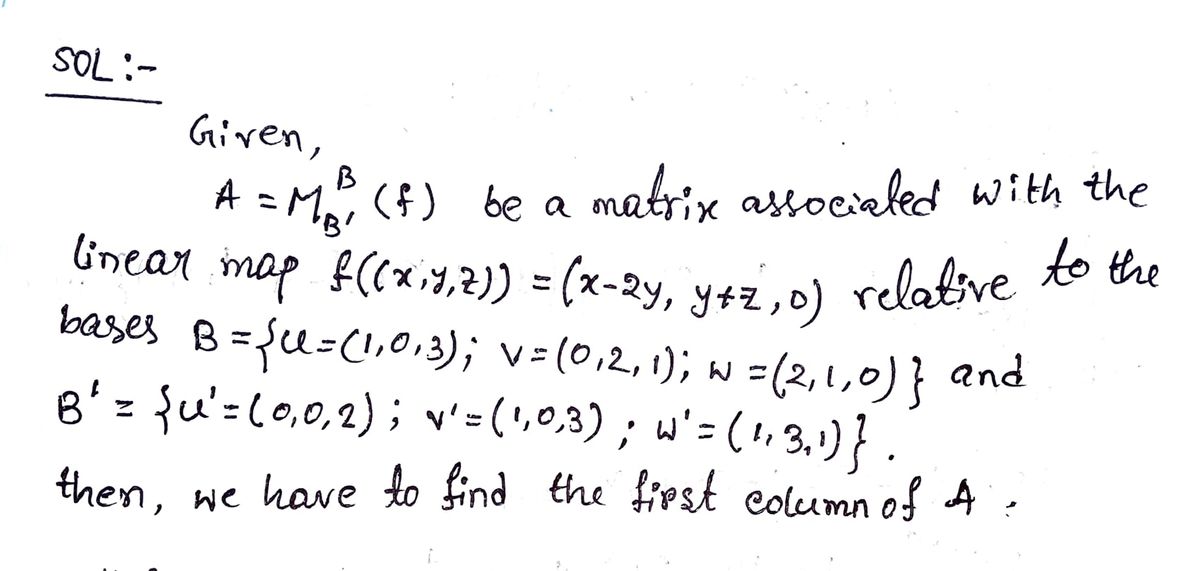 SOL :-
Given,
A = M_{B'}^{B} (f) be a matrix associated with the
linear map f((x,y,z)) = (x-2y, y+z, 0) relative to the
bases B = {u=(1,0,3); v=(0,2,1); w=(2,1,0)} and
B' = {u'=(0,0,2); v'=(1,0,3); w'=(1,3,1)}.
then, we have to find the first column of A.